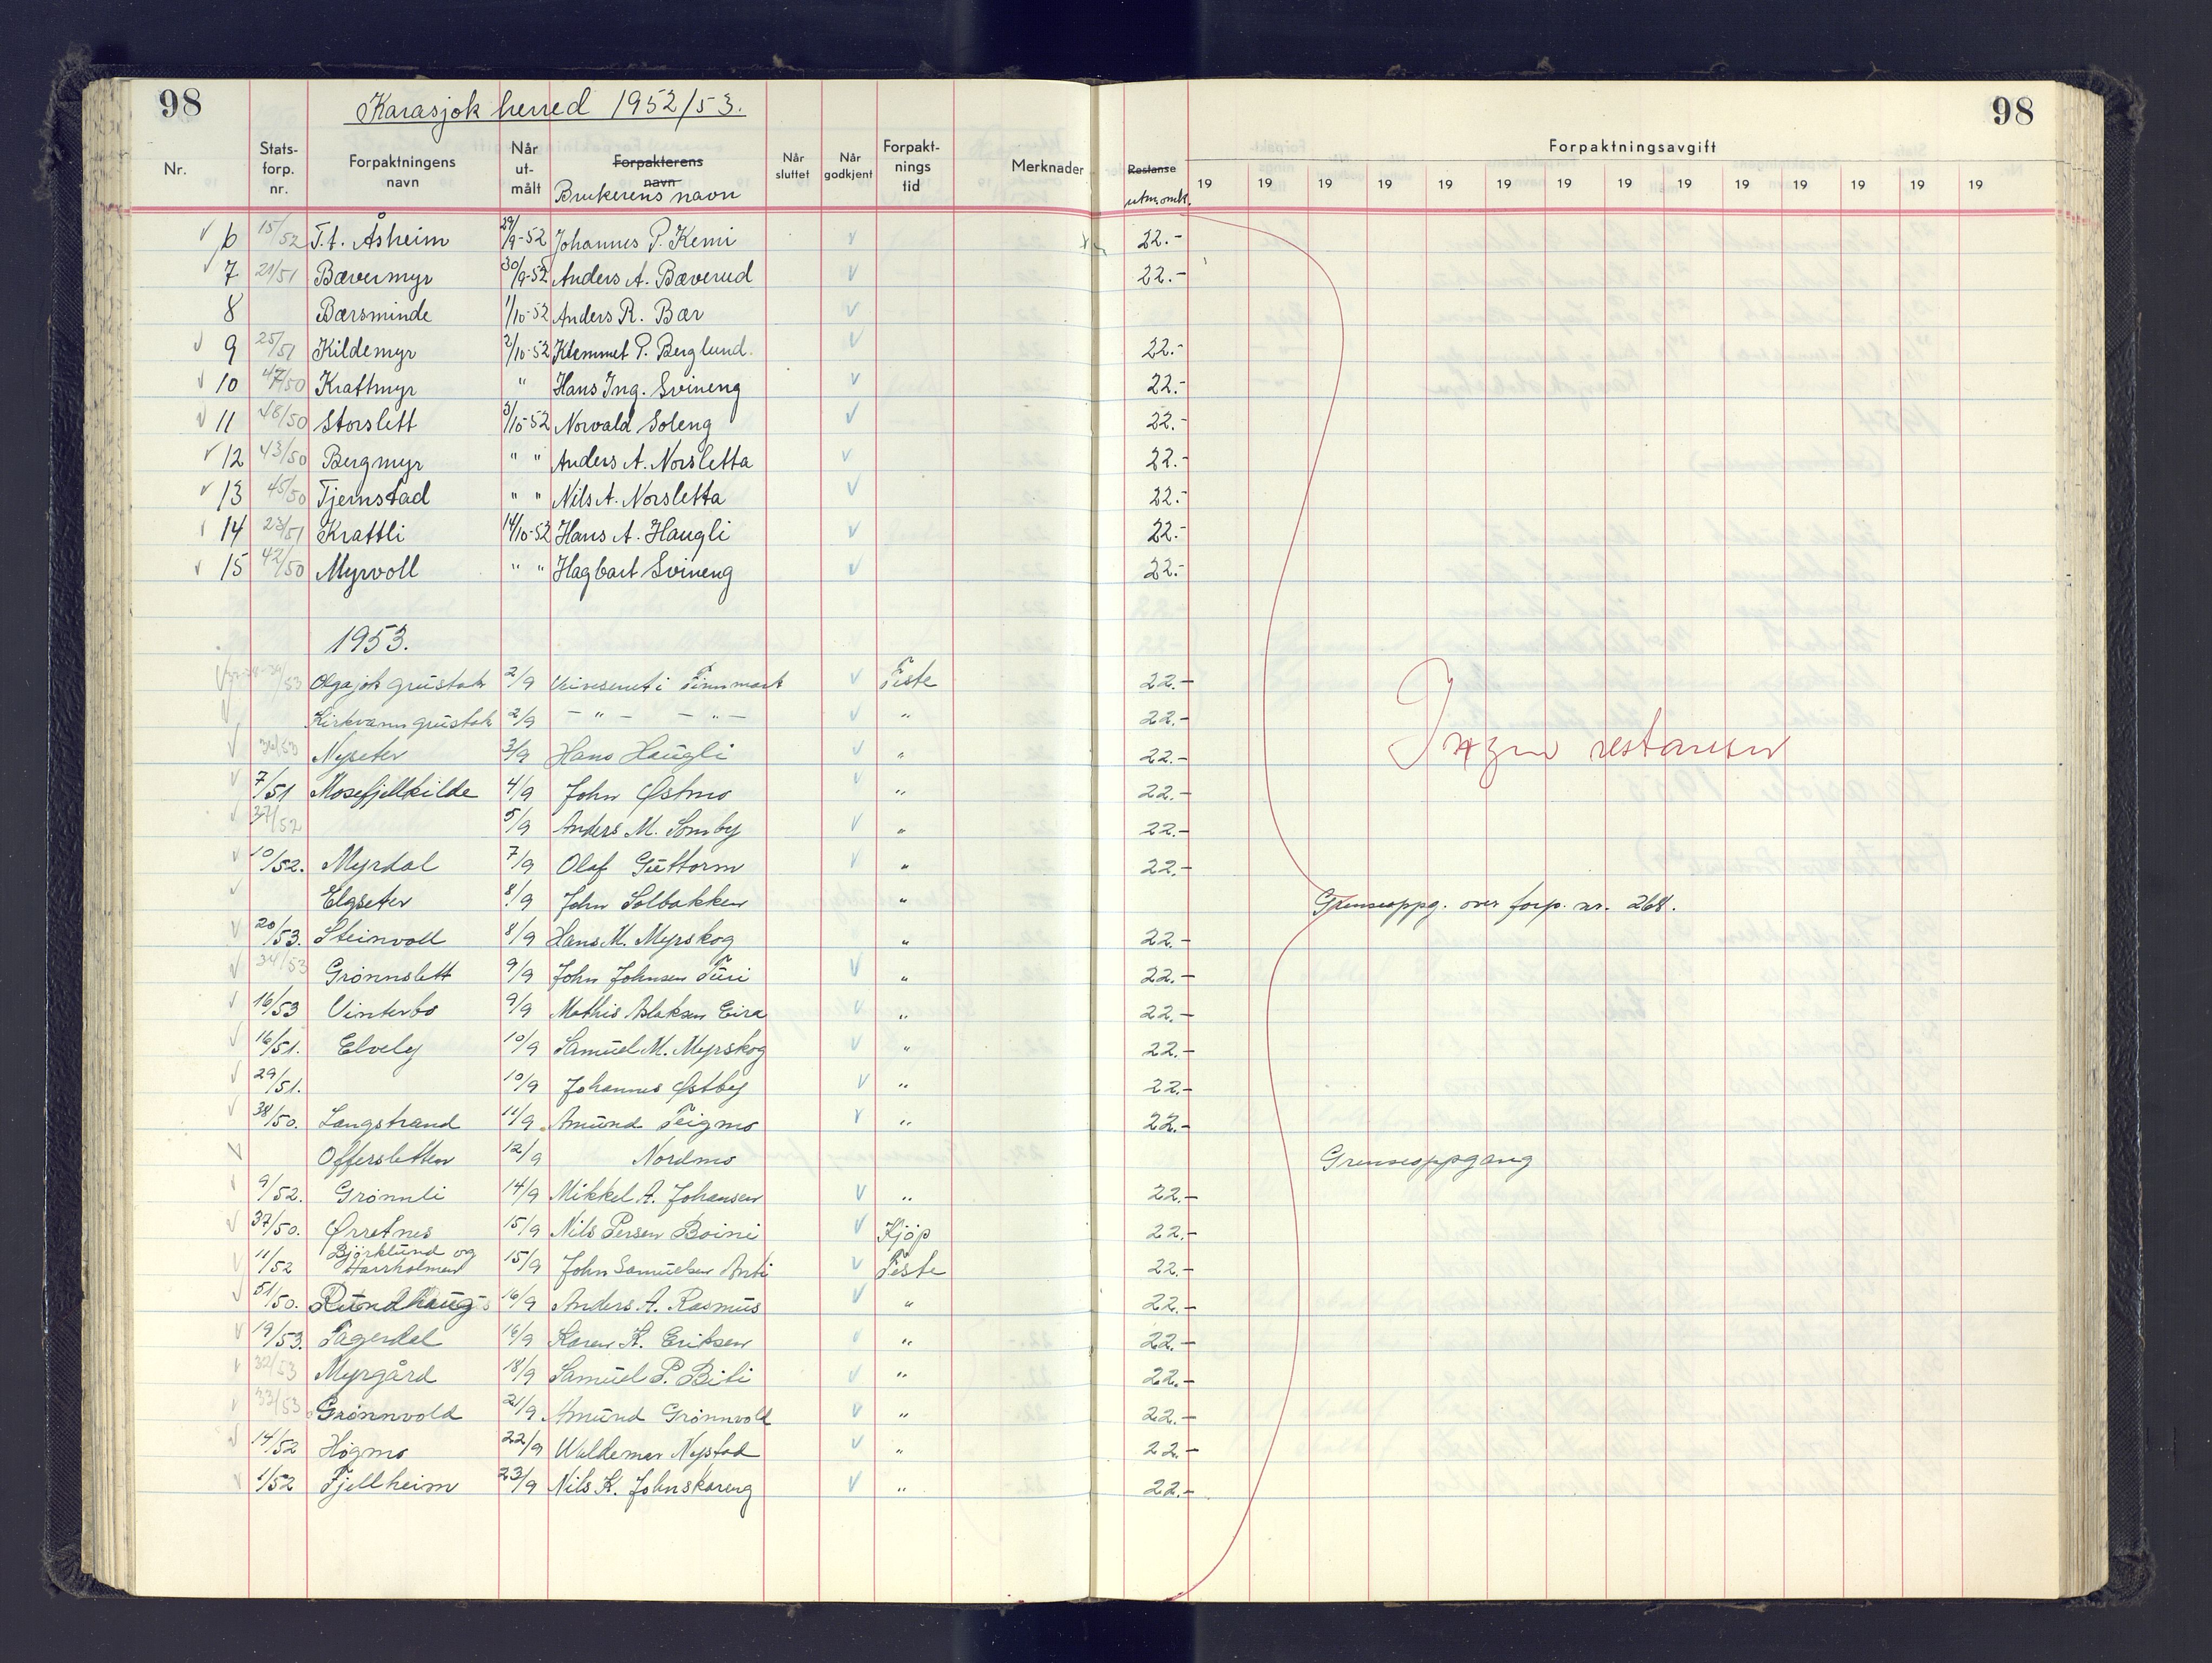 98 Karasjok herred 1952/53. 98
Nr. Stats-forp. nr. Forpaktningens navn Når ut-målt Forpakterens navn Brukerens navn Når sluttet Når godkjent Forpakt-nings tid Merknader Restanse utm.omk. Forpaktningsavgift
19 19 19 19 19 19 19 19 19 19 19 19 19 19
√ 6 15/52 T.t. Åsheim 29/9-52 Johannes P. Kemi √ 22.-
√ 7 21/51 Bævermyr 30/9-52 Anders A. Bæverud √ 22.-
8 Bærsminde 1/10-52 Anders R. Bær √
√ 9 25/51 Kildemyr 2/10-52 Klemmet P. Berglund. √ 22.-
√ 10 47/50 Krattmyr " Hans Ing. Svineng √ 22.-
√ 11 48/50 Storslett 3/10-52 Norvald Soleng √ 22.-
√ 12 43/50 Bergmyr " " Anders A. Norsletta √ 22.-
√ 13 45/50 Tjernstad " " Nils A. Norsletta √ 22.-
√ 14 23/51 Krattli 14/10-52 Hans A. Haugli √ 22.-
√ 15 42/50 Myrvoll " " Hagbart Svineng √ 22.-
1953.
√ Olgajok grustak 2/9 Veivesenet i Finnmark √ Feste 22.-
√ Kirkvann grustak 2/9 - " - - " - √ " 22.-
√ 36/53 Nyseter 3/9 Hans Haugli √ " 22.-
Ingen restanser
√ 7/51 Mosefjellkilde 4/9 John Østmo √ " 22.-
√ 37/52 5/9 Anders M. Somby √ " 22.-
√ 10/52. Myrdal 7/9 Olaf Guttorm √ " 22.-
√ Elgseter 8/9 John Solbakken " Grenseoppg. over forp. nr. 268.
√ 20/53. Steinvoll 8/9 Hans M. Myrskog √ " 22.-
√ 34/53 Grønnslett 9/9 John Johnsen Turi √ " 22.-
√ 16/53 Vinterbo 9/9 Mathis Aslaksen Eira √ " 22.-
√ 16/51. Elvely 10/9 Samuel M. Myrskog √ " 22.-
√ 29/51. 10/9 Johannes Østby √ " 22.-
√ 38/50. Langstrand 11/9 Amund Teigmo √ " 22.-
√ Offersletten 12/9 Nordmo Grenseoppgang
√ 9/52. Grønnli 14/9 Mikkel A. Johansen √ " 22.-
√ 37/50. Ørretnes 15/9 Nils Persen Boini √ Kjøp 22.-
√ 11/52 Bjørklund og Harrholmen 15/9 John Samuelsen Anti √ Feste 22.-
√ 51/50. Rundhaug 16/9 Anders A. Rasmus √ " 22.-
√ 19/53. Fagerdal 16/9 Karen K. Eriksen √ " 22.-
√ 32/53 Myrgård 18/9 Samuel P. Biti √ " 22.-
√ 33/53 Grønnvold 21/9 Amund Grønnvold √ " 22.-
√ 14/52 Høgmo 22/9 Waldemar Nystad √ " 22.-
√ 1/52 Fjellheim 23/9 Nils K. Johnskareng √ " 22.-